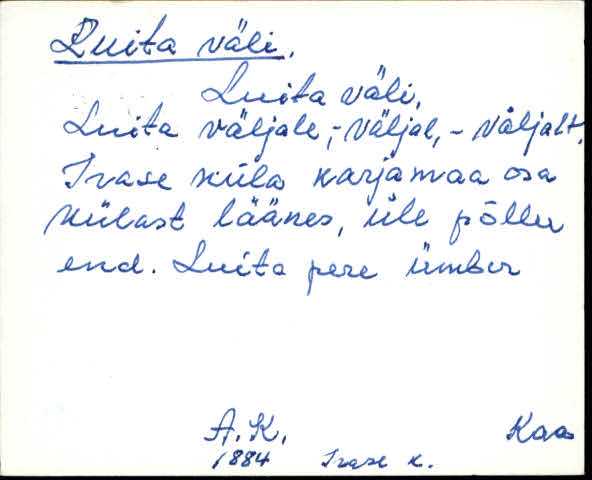 Luita väli.
Luita väli,
Luita väljale, -väljal, - väljalt.
Irase küla karjamaa osa
külast läänes, üle põllu
end. Luita pere ümber
A.K. Kaa
1884 Irase k.